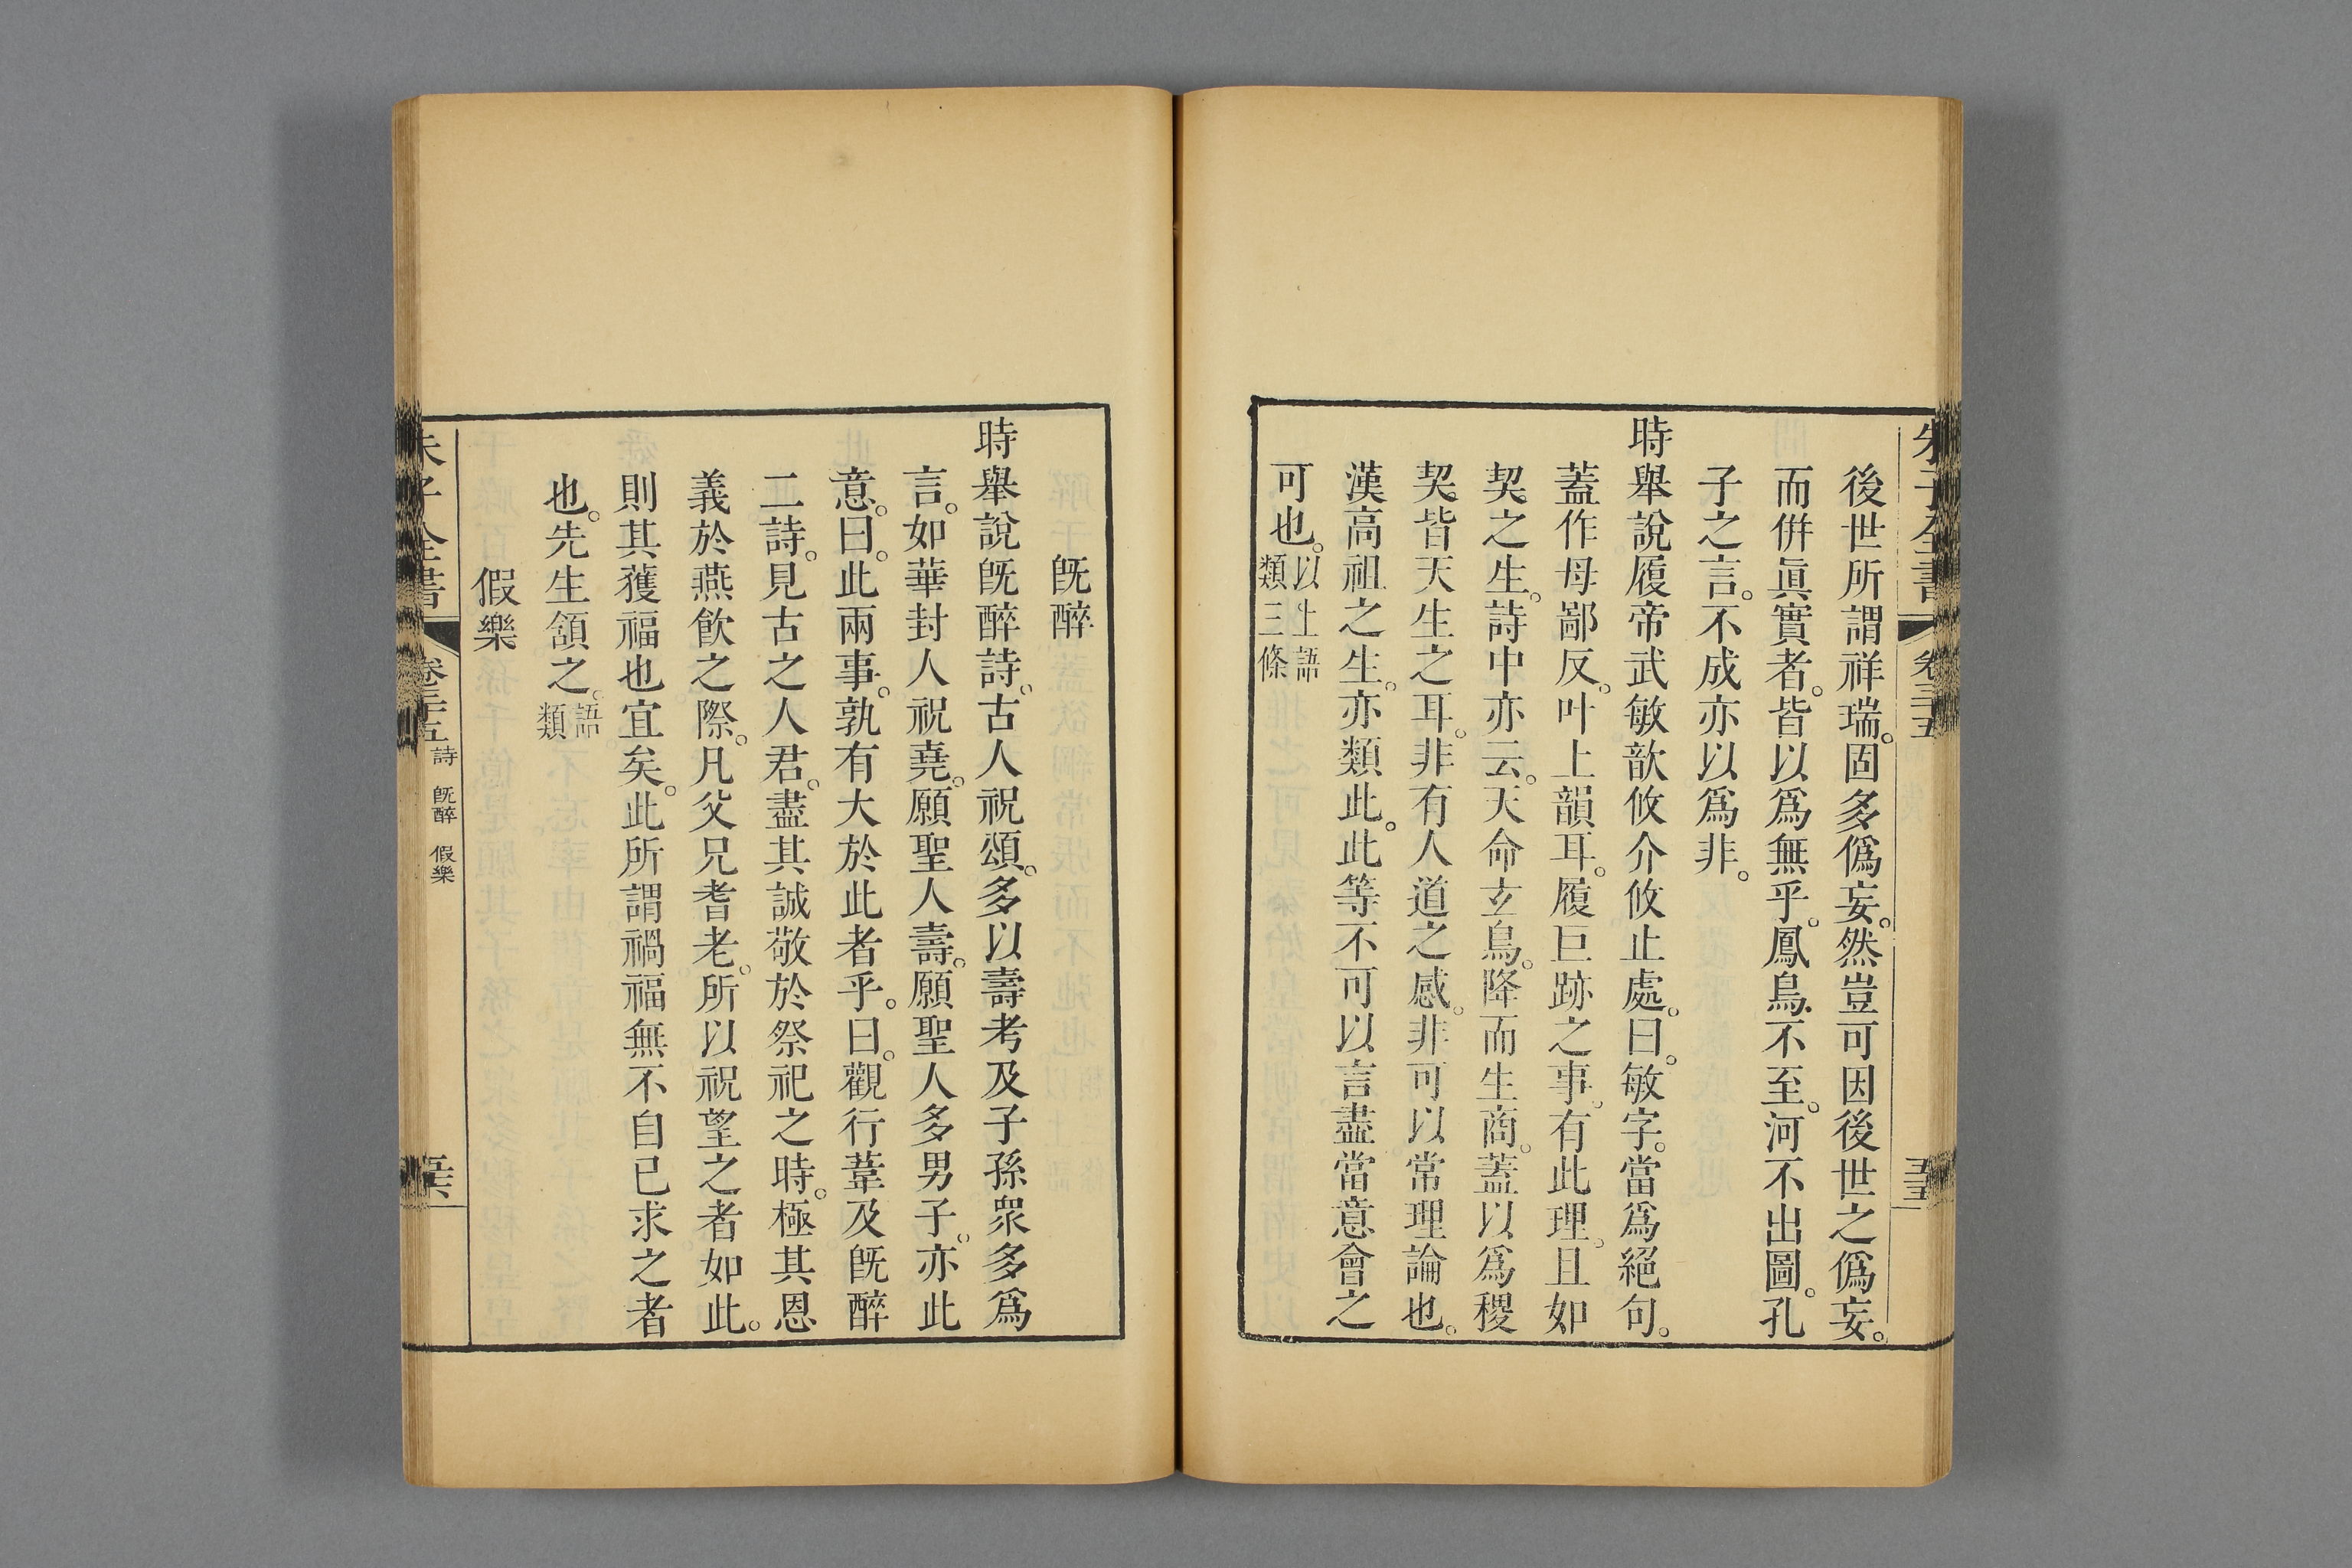 後世所謂祥瑞。固多僞妄。然豈可因後世之僞妄。
而併眞實者。皆以爲無乎。鳳鳥不至。河不出圖。孔
子之言。不成亦以爲非。
時舉說履帝武敏歆攸介攸止處。曰。敏字。當爲絕句。
蓋作母鄙反。叶上韻耳。履巨跡之事。有此理。且如
契之生。詩中亦云。天命玄鳥。降而生商。蓋以爲稷
契皆天生之耳。非有人道之感。非可以常理論也。
漢高祖之生。亦類此。此等不可以言盡當意會之
可也。以上語
類三條
旣醉
時舉說旣醉詩。古人祝頌。多以壽考及子孫衆多爲
言。如華封人祝堯。願聖人壽。願聖人多男子。亦此
意。曰。此兩事。孰有大於此者乎。曰。觀行葦及旣醉
二詩。見古之人君。盡其誠敬於祭祀之時。極其恩
義於燕飮之際。凡父兄耆老。所以祝望之者如此。
則其獲福也宜矣。此所謂禍福無不自己求之者
也。先生頷之。語
類
假樂
朱子全書
卷三十五
詩 旣醉 假樂